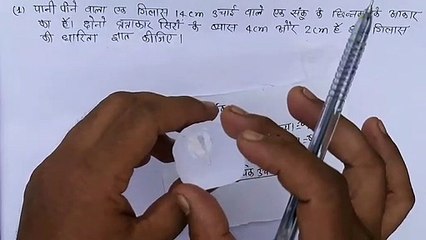 (1) पानी पीने वाला एक गिलास 14 cm ऊंचाई वाले एक शंकु के छिन्नक के आकार
का है। दोनों वृत्ताकार सिरों के व्यास 4 cm और 2 cm हैं गिलास
की धारिता ज्ञात कीजिए।